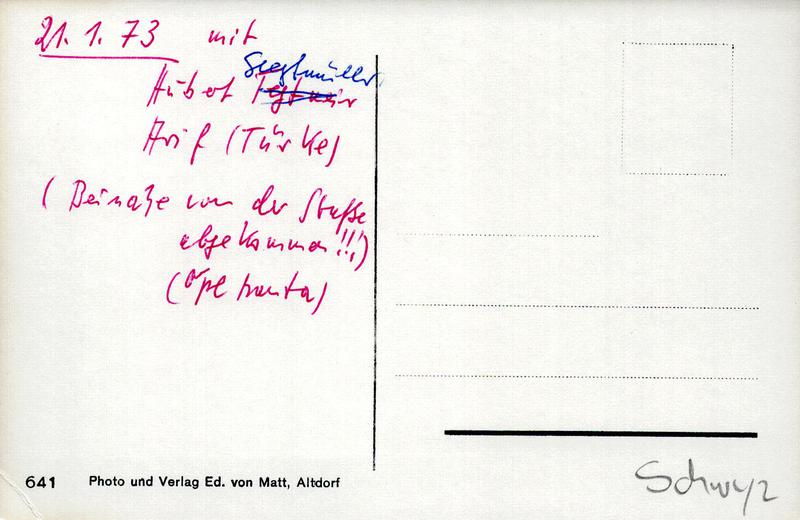 21. 1. 73 mit
Siegtmüller
Hubert
Arif (Türke)
(Beinahe von der Straße
abgekommen!!!)
(Opel Manta)
641 Photo und Verlag Ed. von Matt, Altdorf
Schwyz